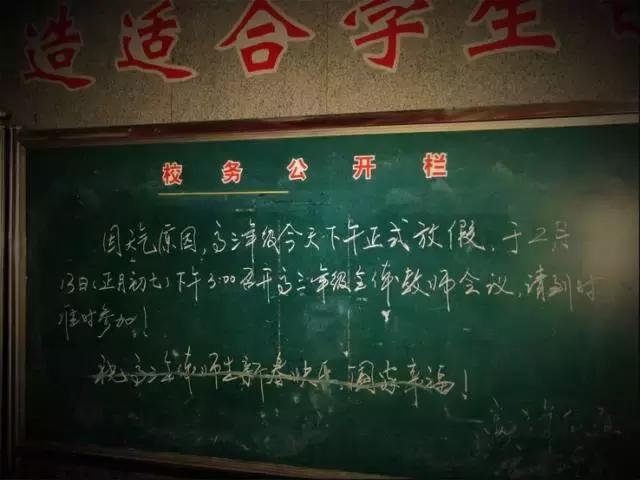 造适合学生
校务公开栏
因天气原因，高三年级今天下午正式放假，于二月
13日(正月初七)下午3:00召开高三年级全体教师会议，请到时
准时参加！
祝高三全体师生新春快乐 阖家幸福！